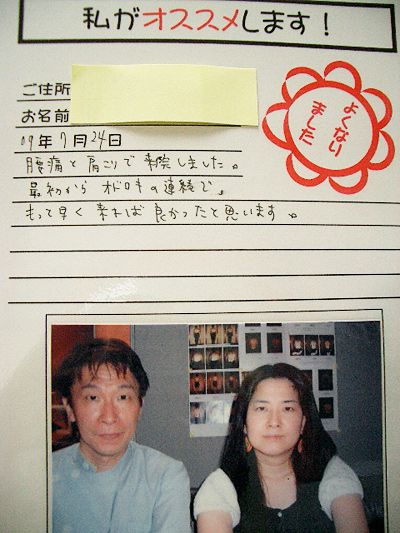 私がオススメします！
ご住所
お名前
よくなり
ました
09年7月24日
腰痛と肩こりで来院しました。
最初からオドロキの連続で、
もっと早く来れば良かったと思います。